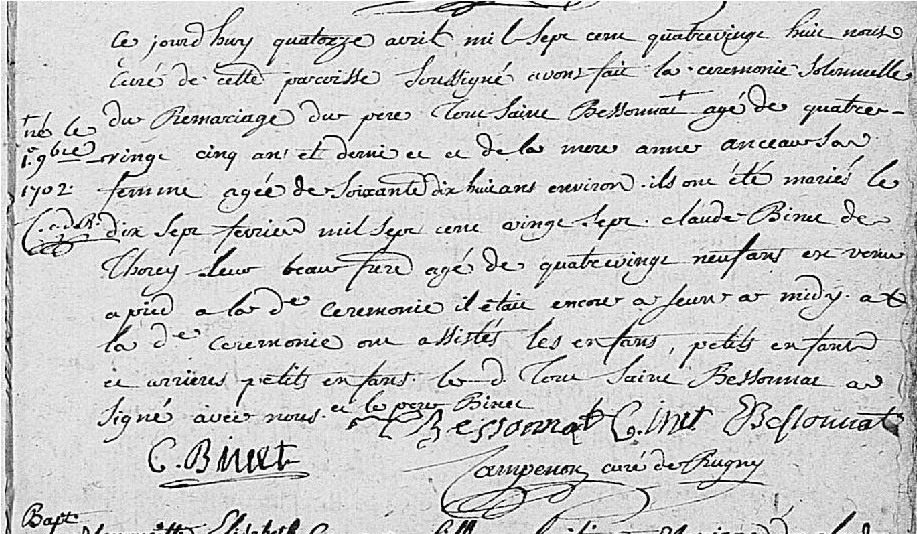 Ce jourdhuy quatorze avril mil sept cent quatrevingt huit nous
Curé de cette paroisse soussigné avons fait la ceremonie solonnelle
du Remariage du pere Tout Saint Bessonnat + agé de quatre-
vingt cinq an et demi et de la mere anne anceau Sa
femme agée de Soixante dix huit ans environ. ils ont été mariés le
dix sept fevrier mil sept cent vingt sept. claude Binet de
Thorey leur beau frere agé de quatrevingt neuf ans est venu
a pied a la de ceremonie il était encore a jeun a midy. at
la de ceremonie ont assistés les enfans, petits enfans
et arrieres petits enfans. le d. Tout Saint Bessonnat a
signé avec nous et le pere Binet
+ né le
1er 9bre
1702
Bessonnat C. Binet EBessonnat
C. Binet
Campenon curé de Rugny
Bapt
Elisabeth